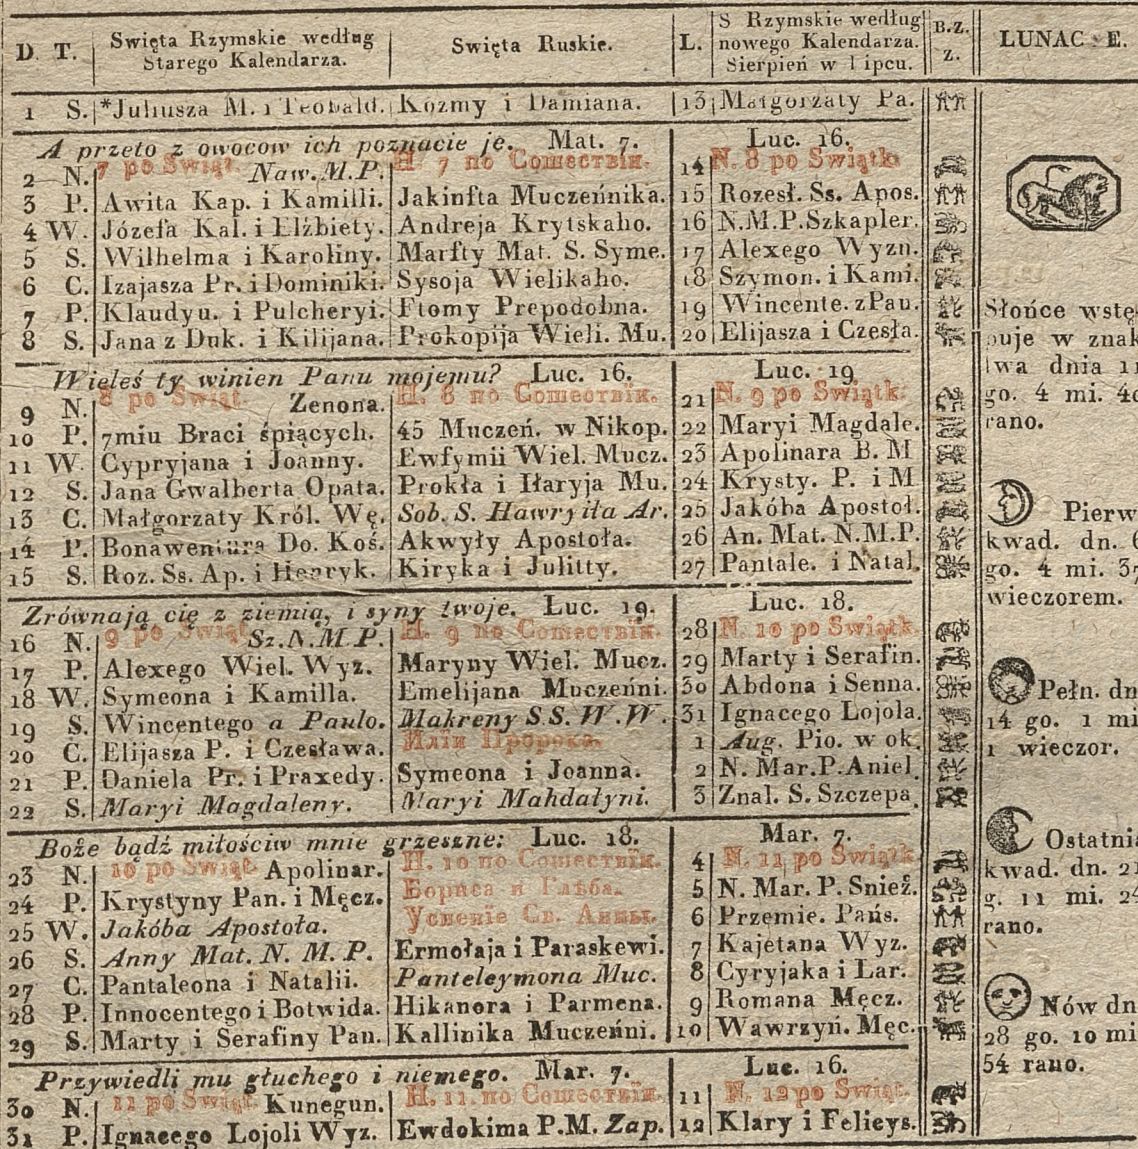 D. T. Swięta Rzymskie według Starego Kalendarza. Swięta Ruskie. L. S Rzymskie według nowego Kalendarza. Sierpień w Lipcu. B.Z. Z. LUNAC E.
1 S. *Juliusza M. i Teobald. Kozmy i Damiana. 13 Małgorzaty Pa.
A przeto z owocow ich poznacie je. Mat. 7. Luc. 16.
2 N. 7 po Swiąt. Naw.M.P. Н. 7 по Сошествїи. 14 N. 8 po Swiątk
3 P. Awita Kap. i Kamilli. Jakinfta Muczeńnika. 15 Rozesł. Ss. Apos.
4 W. Józefa Kal. i Elżbiety. Andreja Krytskaho. 16 N.M.P.Szkapler.
5 S. Wilhelma i Karoliny. Marfty Mat. S. Syme. 17 Alexego Wyzn.
6 C. Izajasza Pr. i Dominiki. Sysoja Wielikaho. 18 Szymon. i Kami.
7 P. Klaudyu. i Pulcheryi. Ftomy Prepodobna. 19 Wincente. z Pau.
8 S. Jana z Duk. i Kilijana. Prokopija Wieli. Mu. 20 Elijasza i Czesła.
Wieleś ty winien Panu mojemu? Luc. 16. Luc. 19
9 N. 8 po Swiąt. Zenona. Н. 8 по Сошествїи. 21 N. 9 po Swiątk.
10 P. 7miu Braci śpiących. 45 Muczeń. w Nikop. 22 Maryi Magdale.
11 W. Cypryjana i Joanny. Ewfymii Wiel. Mucz. 23 Apolinara B. M
12 S. Jana Gwalberta Opata. Prokła i Iłaryja Mu. 24 Krysty. P. i M
13 C. Małgorzaty Król. Wę. Sob. S. Hawryiła Ar. 25 Jakóba Apostoł.
14 P. Bonawentura Do. Koś. Akwyły Apostoła. 26 An. Mat. N.M.P.
15 S. Roz. Ss. Ap. i Henryk. Kiryka i Julitty. 27 Pantale. i Natal.
Zrównają cię z ziemią, i syny twoje. Luc. 19. Luc. 18.
16 N. 9 po Swiąt. Sz.N.M P. Н. 9 по Сошествїи. 28 N. 10 po Swiątk.
17 P. Alexego Wiel. Wyz. Maryny Wiel. Mucz. 29 Marty i Serafin.
18 W. Symeona i Kamilla. Emelijana Muczeńni. 30 Abdona i Senna.
19 S. Wincentego a Paulo. Makreny S.S. W.W. 31 Ignacego Lojola.
20 C. Elijasza P. i Czesława. Илїи Пророка. 1 Aug. Pio. w ok.
21 P. Daniela Pr. i Praxedy. Symeona i Joanna. 2 N. Mar.P.Aniel.
22 S. Maryi Magdaleny. Maryi Mahdałyni. 3 Znal. S. Szczepa.
Boże bądź miłościw mnie grzeszne: Luc. 18. Mar. 7.
23 N. 10 po Swiąt. Apolinar. Н. 10 по Сошествїи. 4 N. 11 po Swiątk
24 P. Krystyny Pan. i Męcz. Бориса и Глѣба. 5 N. Mar. P. Snież.
25 W. Jakóba Apostoła. Успенїе Св. Анны. 6 Przemie. Pańs.
26 S. Anny Mat. N. M. P. Ermołaja i Paraskewi. 7 Kajetana Wyz.
27 C. Pantaleona i Natalii. Panteleymona Muc. 8 Cyryjaka i Lar.
28 P. Innocentego i Botwida. Hikanora i Parmena. 9 Romana Męcz.
29 S. Marty i Serafiny Pan. Kallinika Muczeńni. 10 Wawrzyń. Męc.
Przywiedli mu głuchego i niemego. Mar. 7. Luc. 16.
30 N. 11 po Swiąt. Kunegun. Н. 11. по Сошествїи. 11 N. 12 po Swiąt.
31 P. Ignacego Lojoli Wyz. Ewdokima P.M. Zap. 12 Klary i Felicys.
Słońce wstę
puje w znak
lwa dnia 11
go. 4 mi. 40
rano.
Pierw
kwad. dn. 6
go. 4 mi. 37
wieczorem.
Pełn. dn
14 go. 1 mi
1 wieczor.
Ostatnia
kwad. dn. 21
g. 11 mi. 24
rano.
Nów dn
28 go. 10 mi
54 rano.